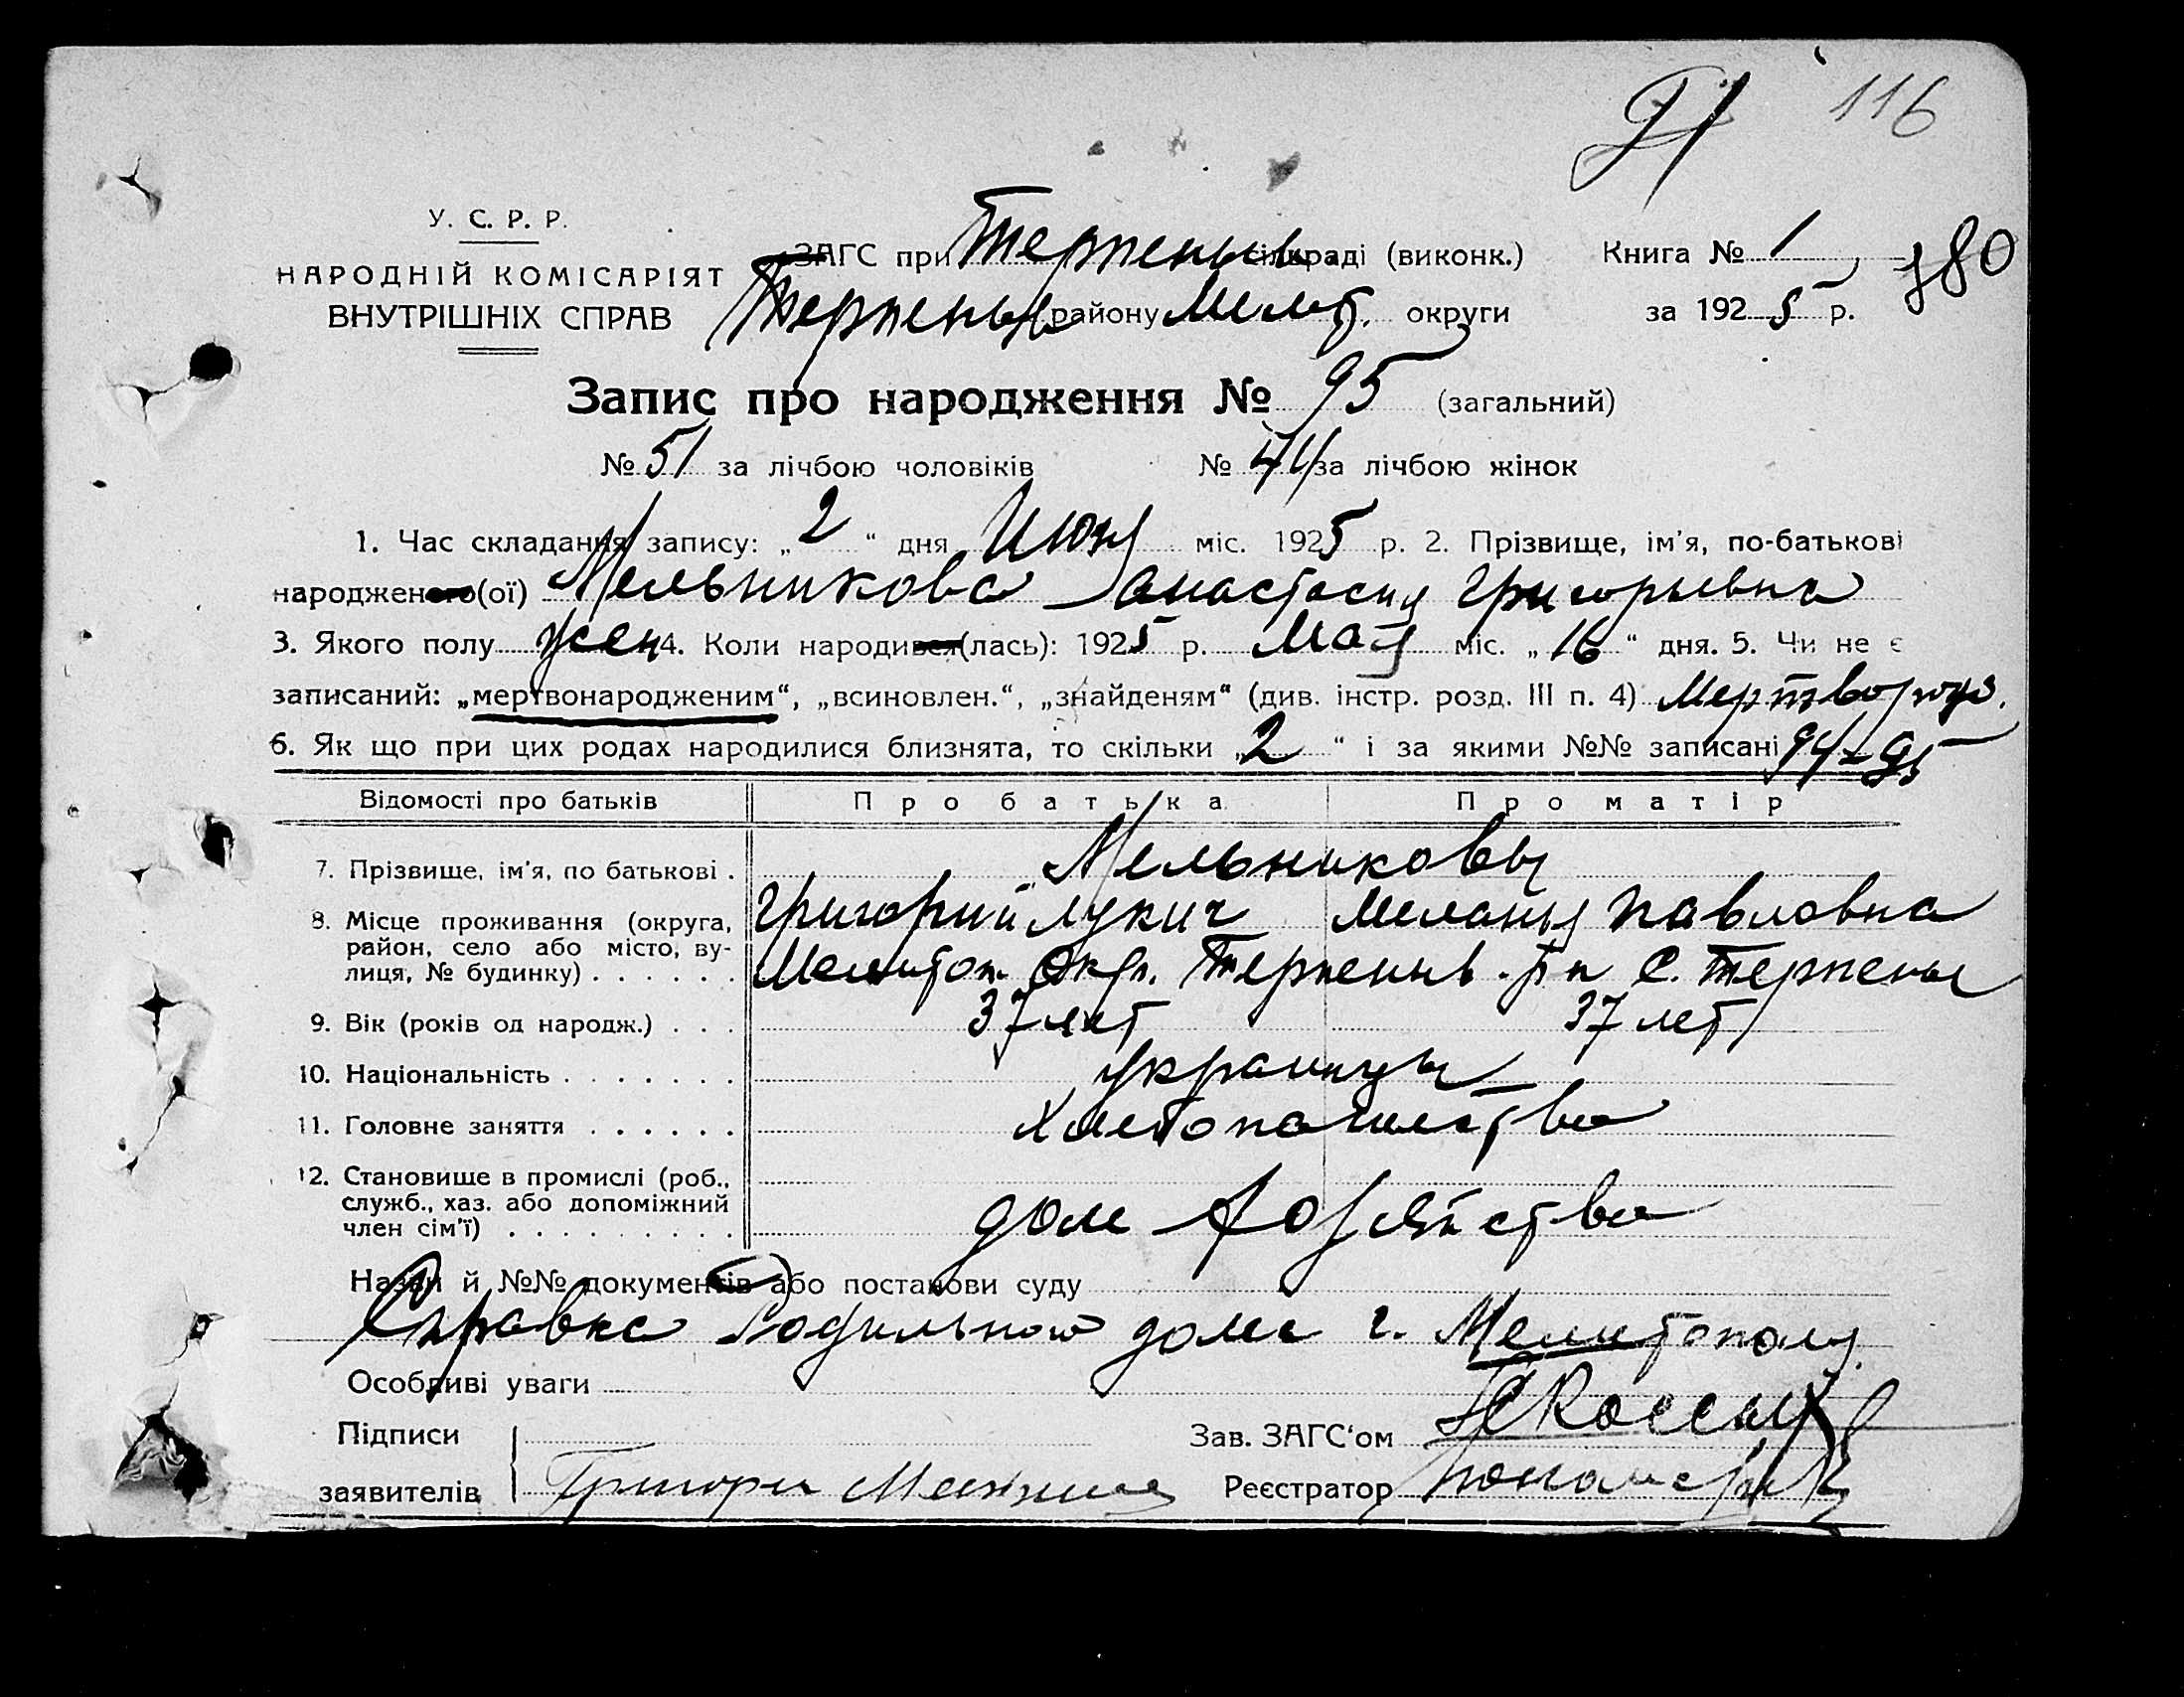 91 116
У. С. Р. Р.
НАРОДНІЙ КОМІСАРІЯТ
ВНУТРІШНІХ СПРАВ
ЗАГС при Терпеньев сільраді (виконк.) Книга № 1
Терпеньев району Мелит. округи за 1925 р. 380
Запис про народження № 95 (загальний)
№ 51 за лічбою чоловіків № 44 за лічбою жінок
1. Час складання запису: „2“ дня Июня міс. 1925 р. 2. Прізвище, ім'я, по-батькові
народженого(ої) Мельникова Анастасия Григорьевна
3. Якого полу жен 4. Коли народився(лась): 1925 р. Мая міс. „16“ дня. 5. Чи не є
записаний: „мертвонародженим“, „всиновлен.“, „знайденям“ (див. інстр. розд. III п. 4) Мертворожд.
6. Як що при цих родах народилися близнята, то скільки „2“ і за якими №№ записані 94-95
Відомості про батьків Про батька Про матір
7. Прізвище, ім'я, по батькові . Мельниковы
Григорий Лукич Меланья Павловна
8. Місце проживання (округа,
район, село або місто, вулиця, № будинку) . . . . . . Мелитоп. Окр. Терпеньев. р-н с. Терпенье
9. Вік (років од народж.) . . . 37 лет 37 лет
10. Національність . . . . . . . украинцы
11. Головне заняття . . . . . . Хлебопашество
12. Становище в промислі (роб.,
служб., хаз. або допоміжний
член сім'ї) . . . . . . . . . дом хозяйство
Назви й №№ документів або постанови суду
Справка Родильного дома г. Мелитополя
Особливі уваги
Підписи Зав. ЗАГС'ом
заявителів Григори Реєстратор